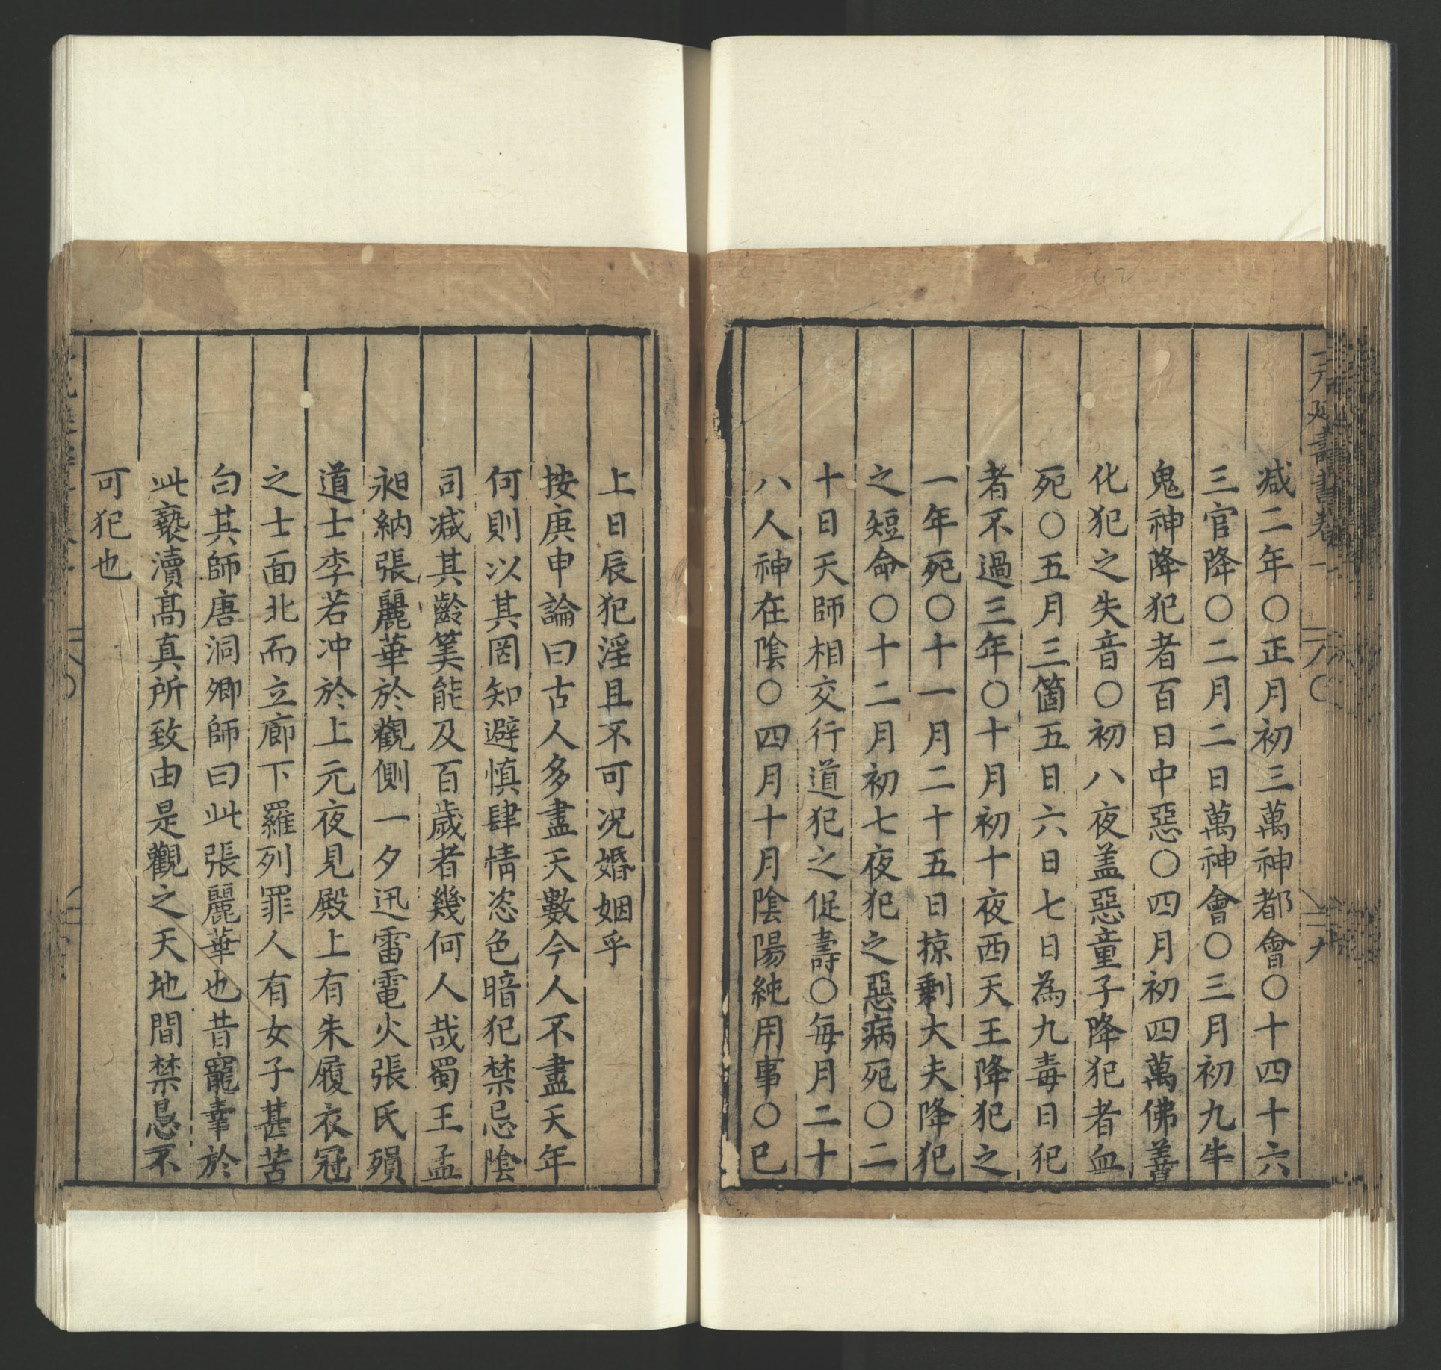 減二年〇正月初三萬神都會〇十四十六
三官降〇二月二日萬神會〇三月初九牛
鬼神降犯者百日中惡〇四月初四萬佛善
化犯之失音〇初八夜盖惡童子降犯者血
死〇五月三箇五日六日七日為九毒日犯
者不過三年〇十月初十夜西天王降犯之
一年死〇十一月二十五日掠剩大夫降犯
之短命〇十二月初七夜犯之惡病死〇二
十日天師相交行道犯之促壽〇每月二十
八人神在陰〇四月十月陰陽純用事〇已
上日辰犯淫且不可况婚姻乎
按庚申論曰古人多盡天數今人不盡天年
何則以其罔知避慎肆情恣色暗犯禁忌陰
司减其齡筭能及百歲者幾何人哉蜀王孟
昶納張麗華於觀側一夕迅雷電火張氏殞
道士李若冲於上元夜見殿上有朱履衣冠
之士面北而立廊下羅列罪人有女子甚苦
白其師唐洞卿師曰此張麗華也昔寵幸於
此褻瀆高真所致由是觀之天地間禁忌不
可犯也